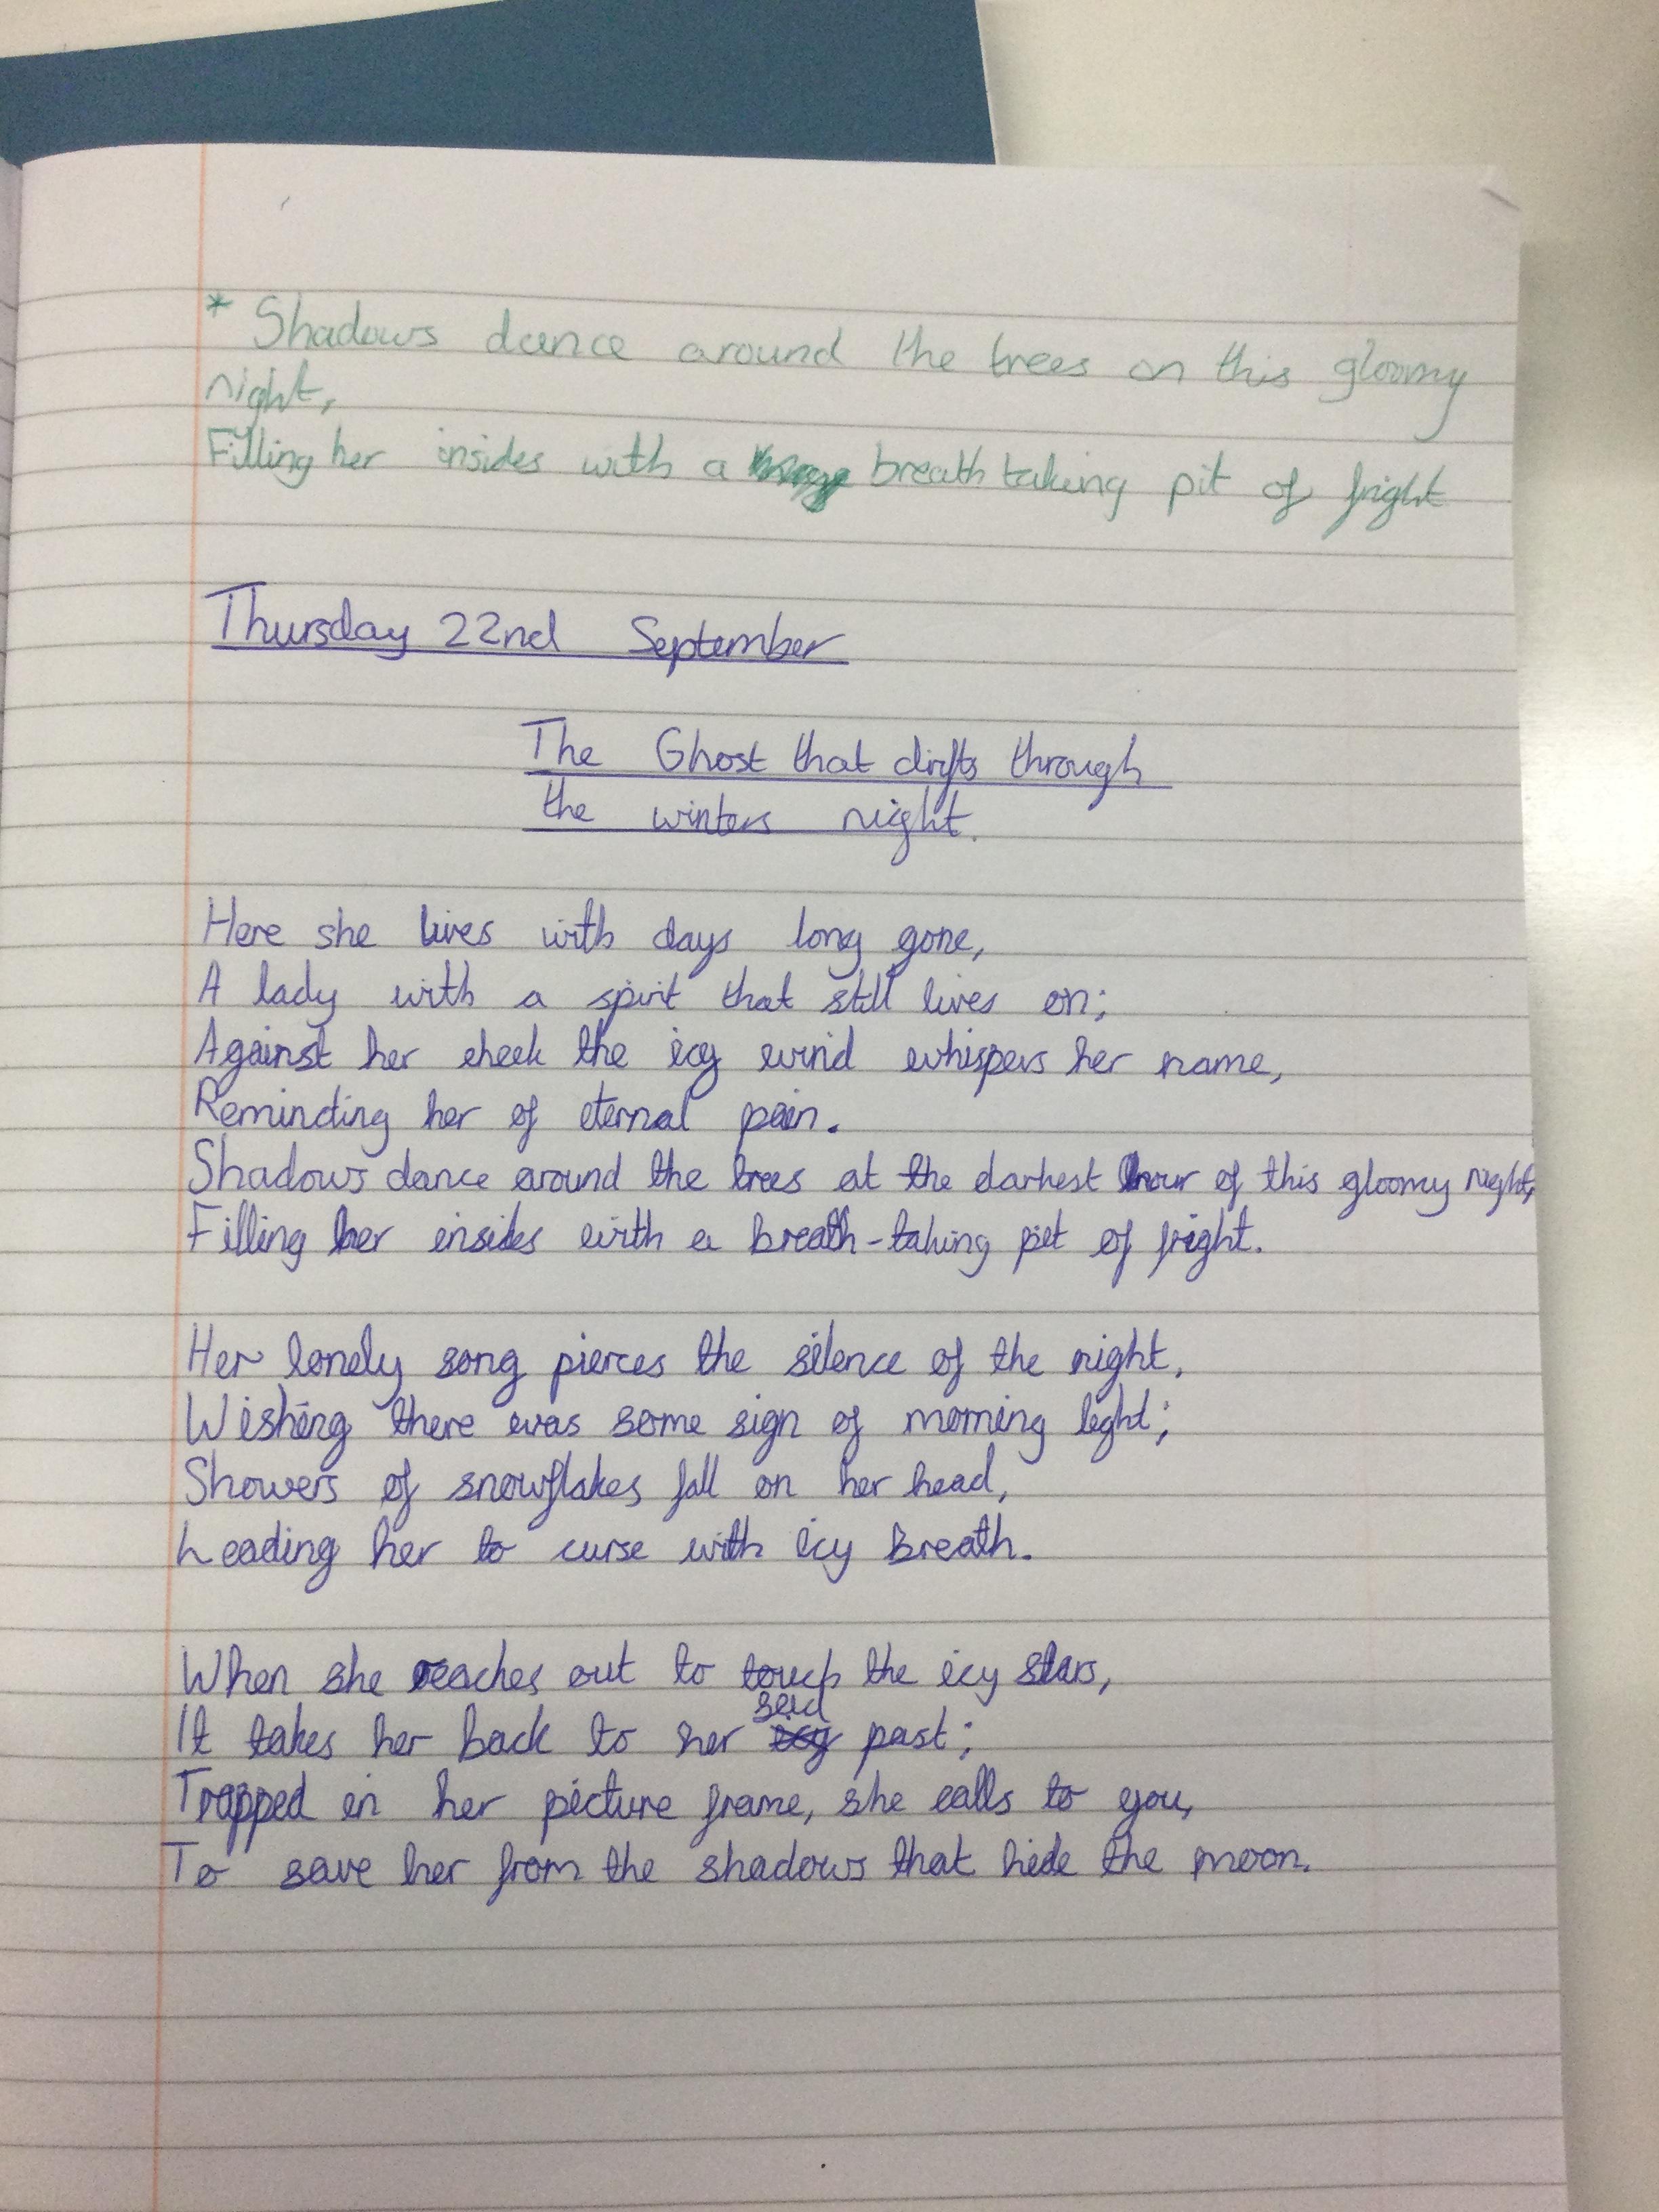 * Shadows dance around the trees on this gloomy
night,
Filling her insides with a breath taking pit of fright
Thursday 22nd September
The Ghost that drifts through
the winters night.
Here she lives with days long gone,
A lady with a spirit that still lives on;
Against her cheek the icy wind whispers her name,
Reminding her of eternal pain.
Shadows dance around the trees at the darkest hour of this gloomy night,
Filling her insides with a breath-taking pit of fright.
Her lonely song pierces the silence of the night,
Wishing there was some sign of morning light;
Showers of snowflakes fall on her head,
Leading her to curse with icy Breath.
When she reaches out to touch the icy stars,
It takes her back to her past;
Trapped in her picture frame, she calls to you,
To save her from the shadows that hide the moon.